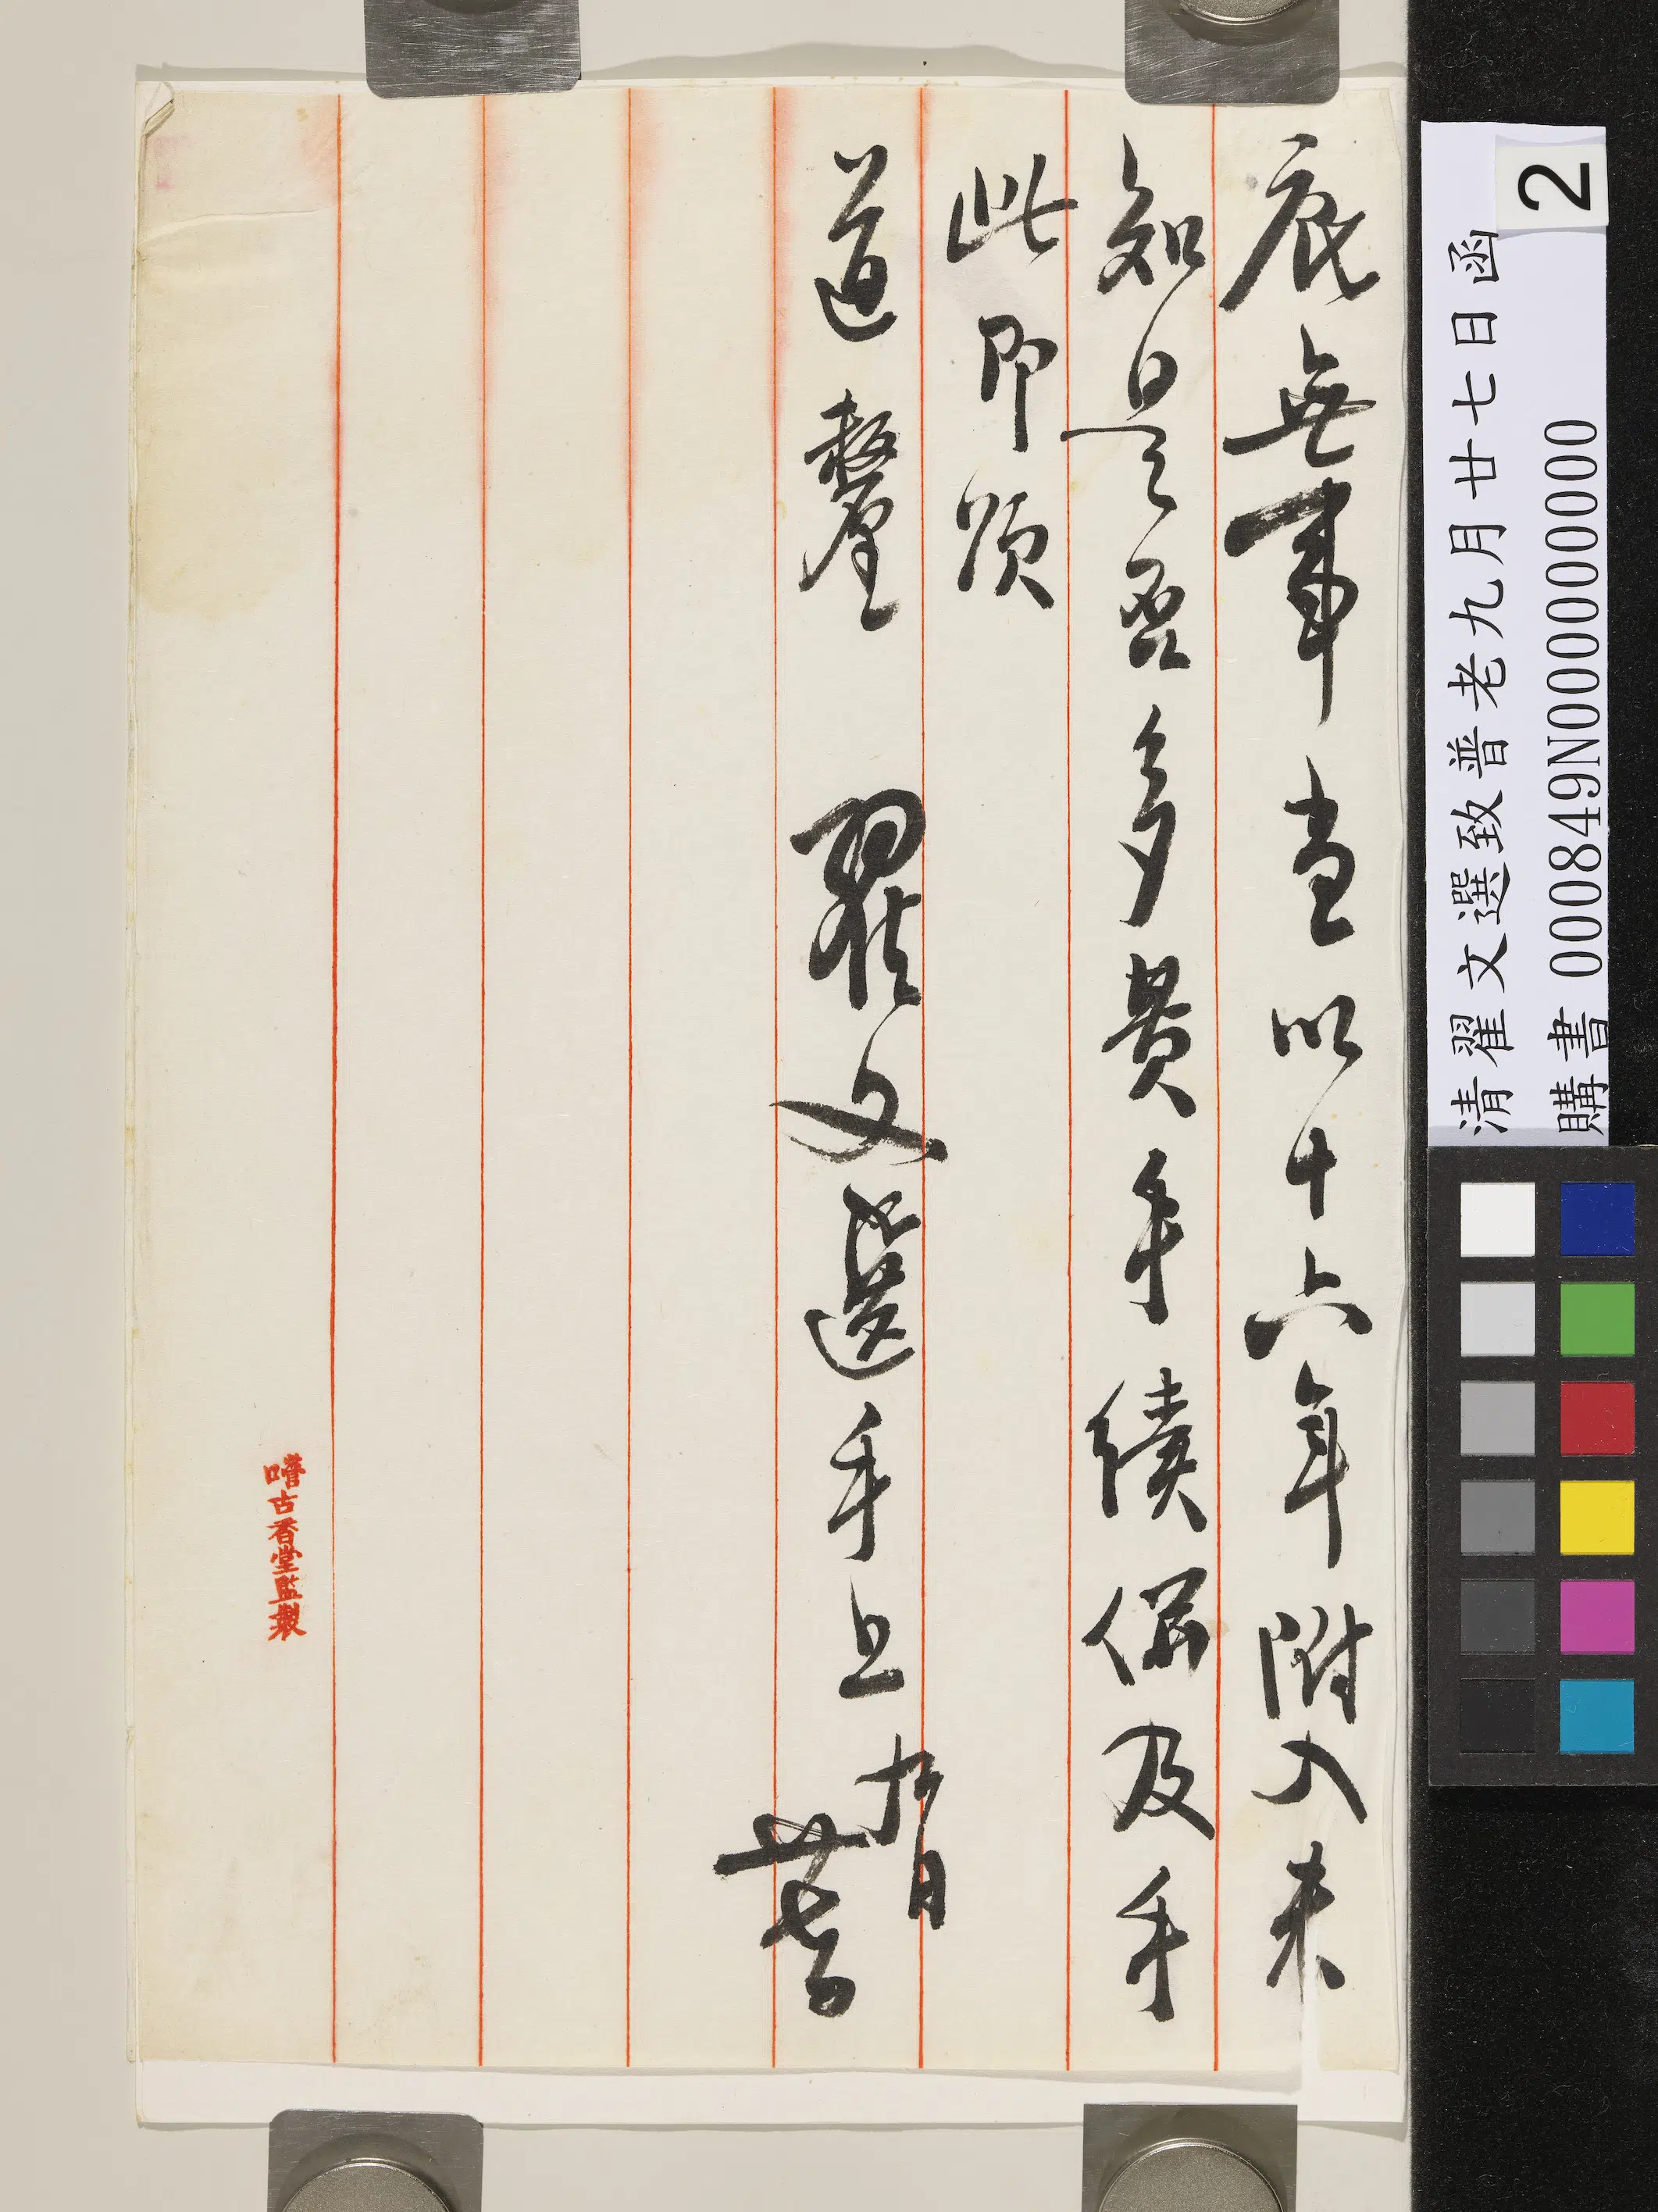 無事盍以十六年附入未
知是否多費手續倘及手
此即頌
道釐 翟文選手上 九月
廿七日
嗜古香堂監製
2
清翟文選致普老九月廿七日函
購書 000849N000000000